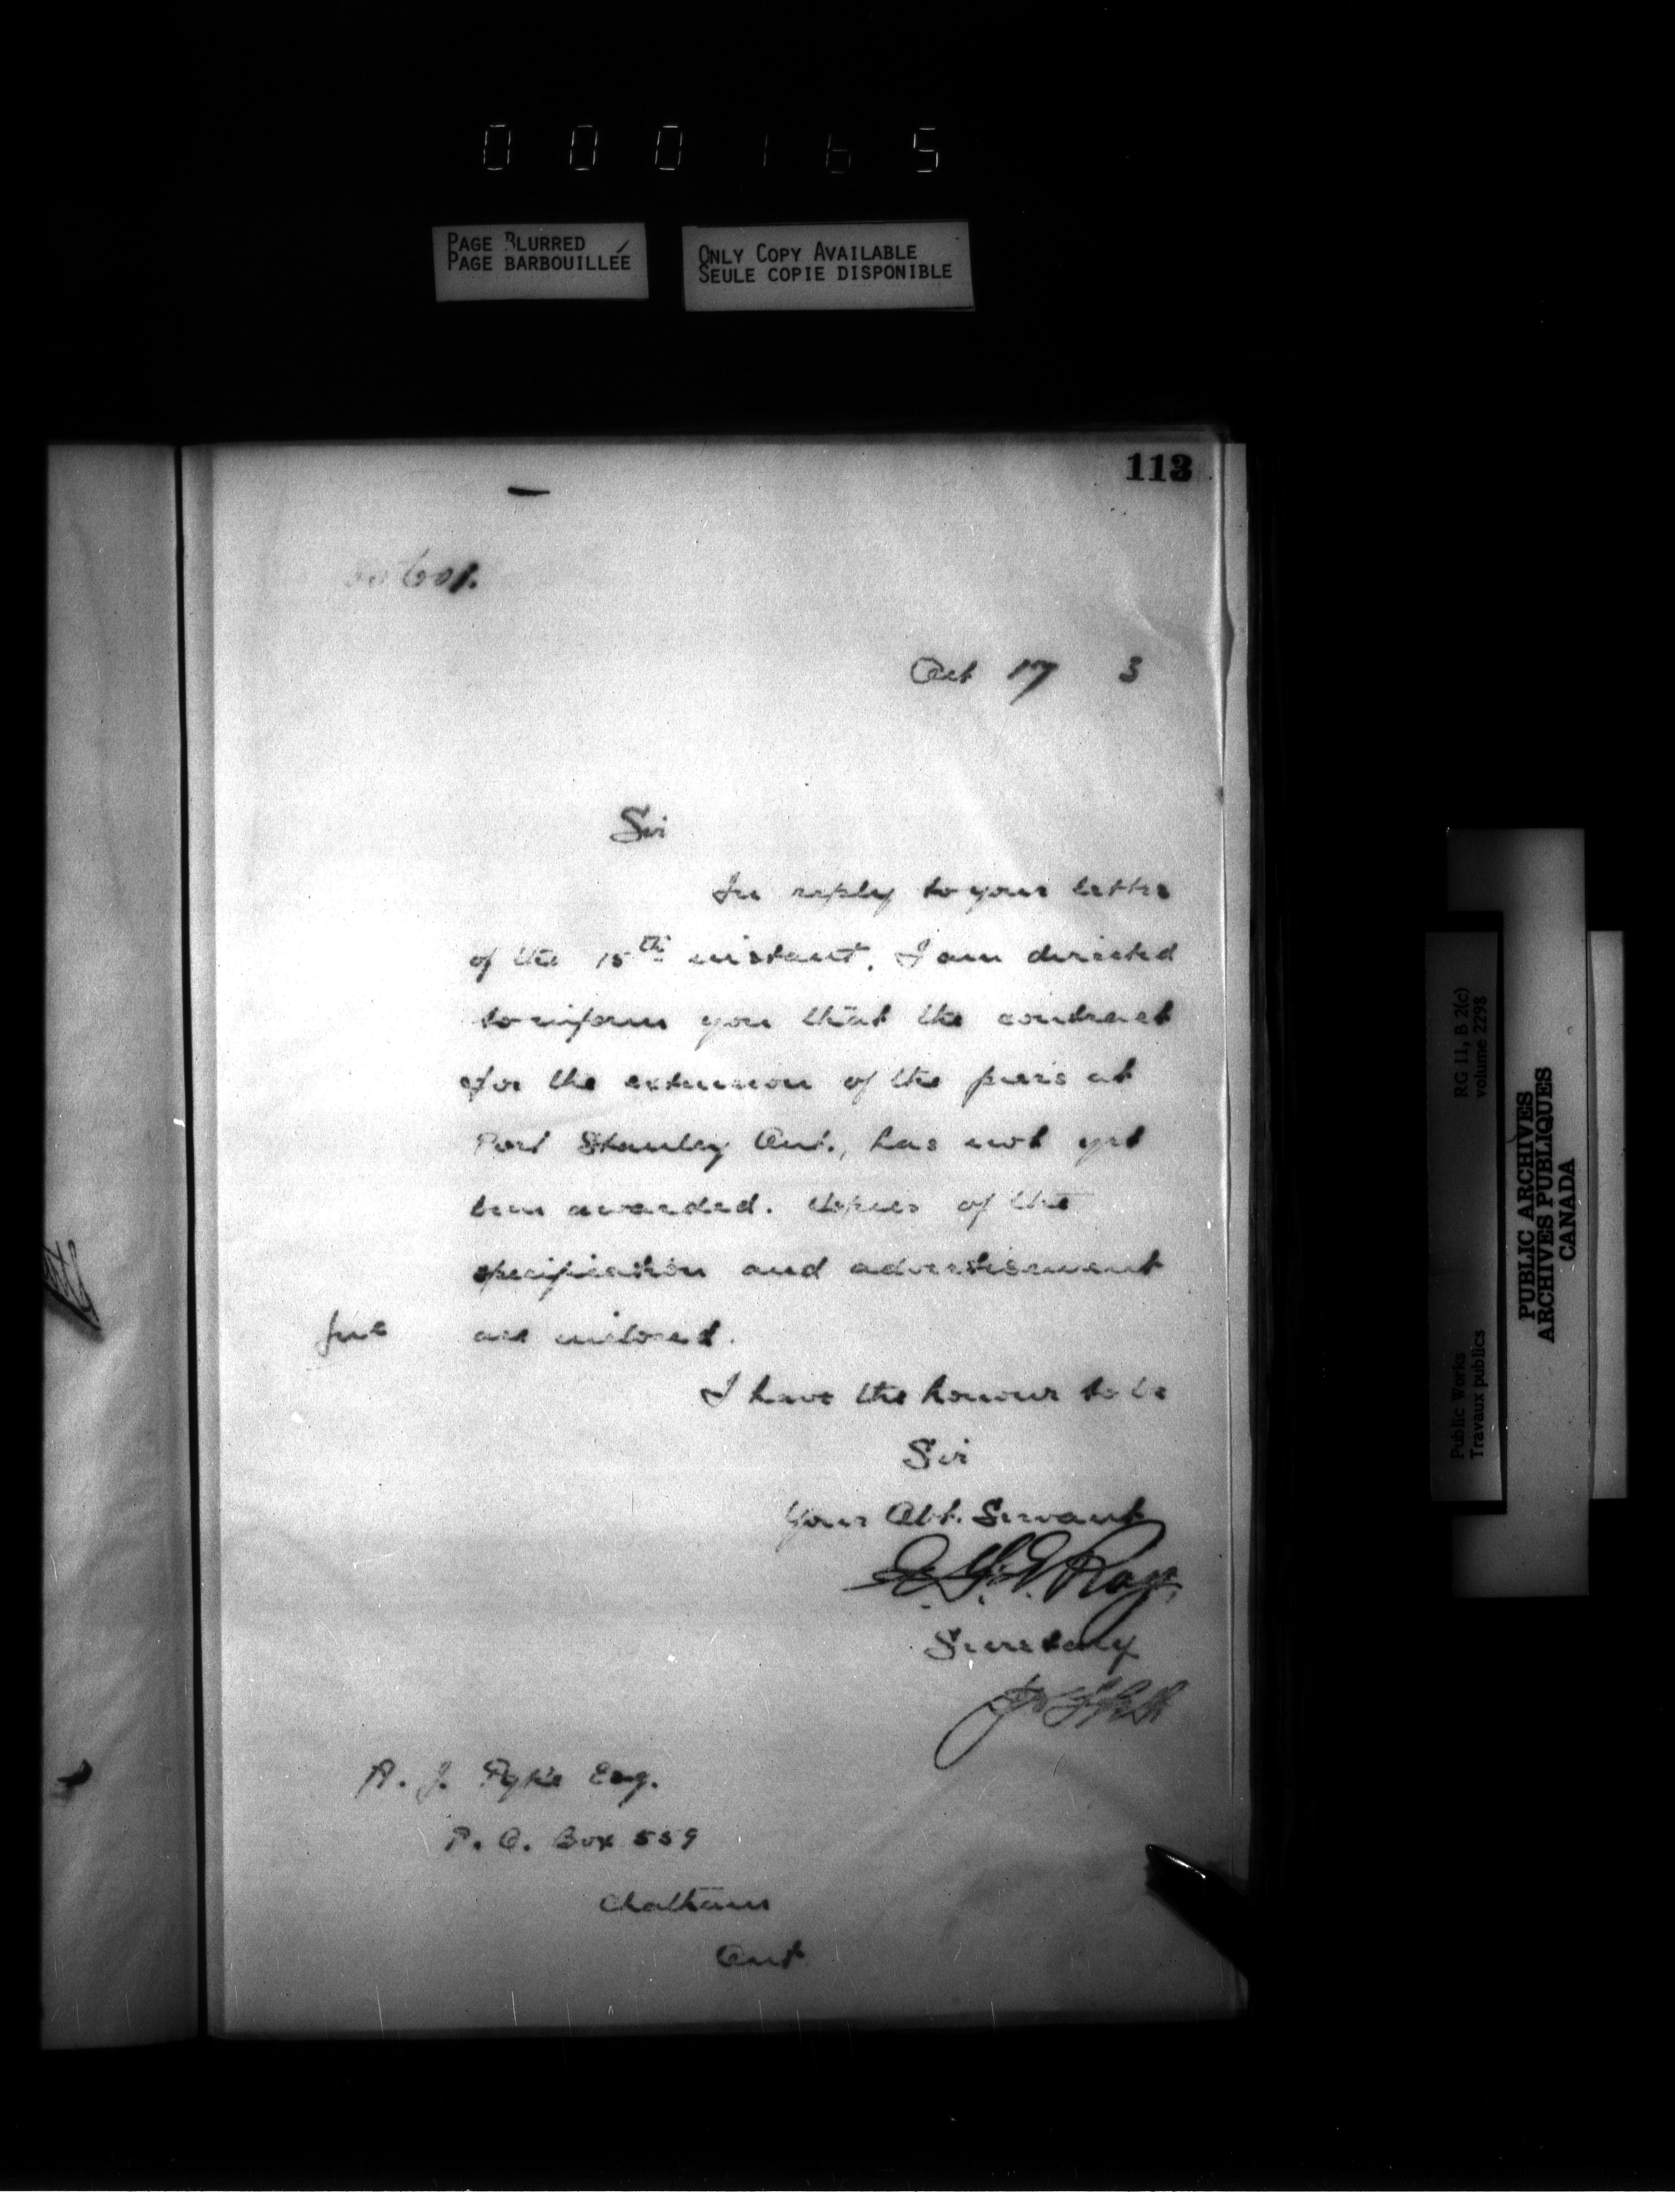 000165
PAGE BLURRED
PAGE BARBOUILLÉE
ONLY COPY AVAILABLE
SEULE COPIE DISPONIBLE
113
Oct 17 3
Sir
In reply to your letter
of the 15th instant, I am directed
to inform you that the contract
for the extension of the piers at
Port Stanley Ont., has not yet
been awarded. Copies of the
specification and advertisement
are inclosed.
I have the honour to be
Sir
Your Obt. Servant
Roy
Secretary
A. J. Pyke Esq.
P. O. Box 559
Chatham
Ont
RG 11, B 2(c)
volume 2298
Public Works
Travaux publics
PUBLIC ARCHIVES
ARCHIVES PUBLIQUES
CANADA